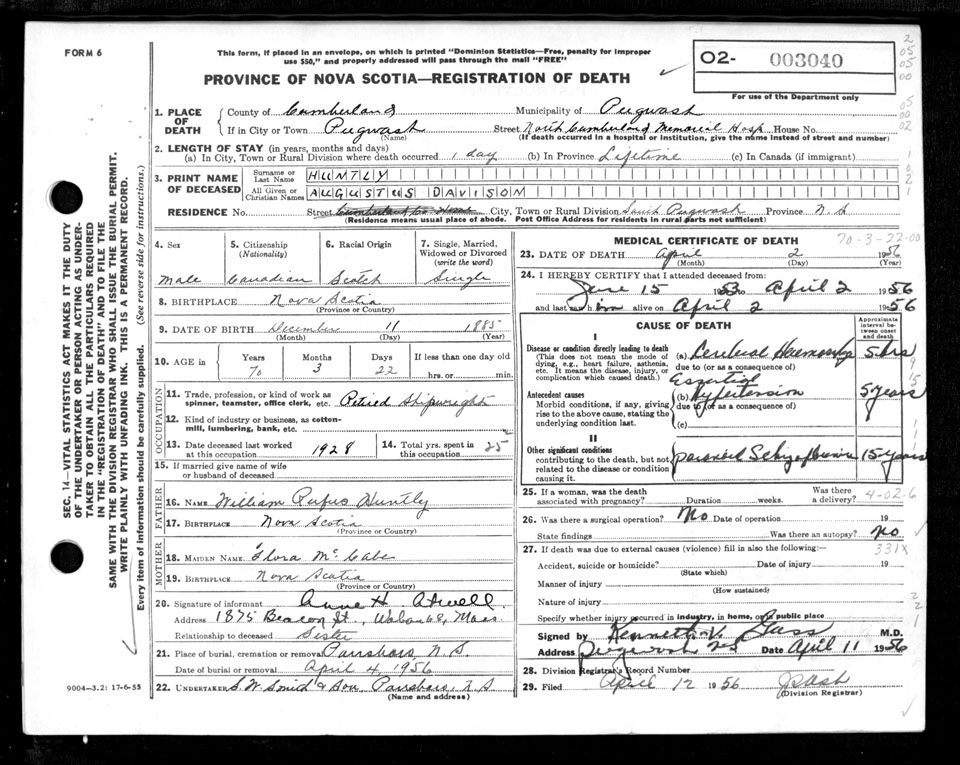 FORM 6
This form, if placed in an envelope, on which is printed "Dominion Statistics—Free, penalty for improper
use $50," and properly addressed will pass through the mail "FREE"
PROVINCE OF NOVA SCOTIA—REGISTRATION OF DEATH
02- 003040
For use of the Department only
1. PLACE OF DEATH
County of Cumberland Municipality of Pugwash
If in City or Town Pugwash Street North Cumberland Memorial Hosp House No.
(Name) (If death occurred in a hospital or institution, give the name instead of street and number)
2. LENGTH OF STAY (in years, months and days)
(a) In City, Town or Rural Division where death occurred 1 day (b) In Province Lifetime (c) In Canada (if immigrant)
3. PRINT NAME OF DECEASED
Surname or Last Name HUNTLY
All Given or Christian Names AUGUSTUS DAVISON
RESIDENCE No. Street Cumberland Co. Home City, Town or Rural Division South Pugwash Province N S
(Residence means usual place of abode. Post Office Address for residents in rural parts not sufficient)
4. Sex
Male
5. Citizenship
(Nationality)
Canadian
6. Racial Origin
Scotch
7. Single, Married,
Widowed or Divorced
(write the word)
Single
8. BIRTHPLACE Nova Scotia
(Province or Country)
9. DATE OF BIRTH December 11 1885
(Month) (Day) (Year)
10. AGE in
Years Months Days If less than one day old
70 3 22 hrs. or min.
OCCUPATION
11. Trade, profession, or kind of work as
spinner, teamster, office clerk, etc. Retired Shipwright
12. Kind of industry or business, as cotton-
mill, lumbering, bank, etc.
13. Date deceased last worked
at this occupation 1928
14. Total yrs. spent in
this occupation 25
15. If married give name of wife
or husband of deceased
FATHER
16. NAME William Rufus Huntly
17. BIRTHPLACE Nova Scotia
(Province or Country)
MOTHER
18. MAIDEN NAME Flora McCabe
19. BIRTHPLACE Nova Scotia
(Province or Country)
20. Signature of informant Anne H Atwell.
Address 1875 Beacon St., Waban 68, Mass.
Relationship to deceased Sister
21. Place of burial, cremation or removal Parrsboro, N.S.
Date of burial or removal April 4, 1956
22. UNDERTAKER S. W. Smith & Son Parrsboro, N S
(Name and address)
MEDICAL CERTIFICATE OF DEATH
70-3-22-00
23. DATE OF DEATH April 2 1956
(Month) (Day) (Year)
24. I HEREBY CERTIFY that I attended deceased from:
June 15 1953 to April 2 1956
and last saw him alive on April 2 1956
CAUSE OF DEATH
Approximate interval between onset and death
I
Disease or condition directly leading to death
(This does not mean the mode of dying, e.g., heart failure, asthenia, etc. It means the disease, injury, or complication which caused death.)
(a) Cerebral Haemorrhage 5 hrs
due to (or as a consequence of)
Antecedent causes
Morbid conditions, if any, giving rise to the above cause, stating the underlying condition last.
Essential
(b) Hypertension 5 years
due to (or as a consequence of)
(c)
II
Other significant conditions
contributing to the death, but not related to the disease or condition causing it.
paranoid Schizophrenia 15 years
25. If a woman, was the death
associated with pregnancy? Duration weeks. Was there a delivery?
4-02-6
26. Was there a surgical operation? No Date of operation 19
State findings Was there an autopsy? No
27. If death was due to external causes (violence) fill in also the following:—
331X
Accident, suicide or homicide? Date of injury 19
(State which)
Manner of injury
(How sustained)
Nature of injury
Specify whether injury occurred in industry, in home, or in public place
Signed by Kenneth V. Glass M.D.
Address Pugwash NS Date April 11 1956
28. Division Registrar's Record Number
29. Filed April 12 1956
(Division Registrar)
SEC. 14—VITAL STATISTICS ACT MAKES IT THE DUTY
OF THE UNDERTAKER OR PERSON ACTING AS UNDER-
TAKER TO OBTAIN ALL THE PARTICULARS REQUIRED
IN THE "REGISTRATION OF DEATH" AND TO FILE THE
SAME WITH THE DIVISION REGISTRAR WHO SHALL ISSUE THE BURIAL PERMIT.
WRITE PLAINLY WITH UNFADING INK. THIS IS A PERMANENT RECORD.
Every item of information should be carefully supplied. (See reverse side for instructions.)
9004-3.2: 17-6-55